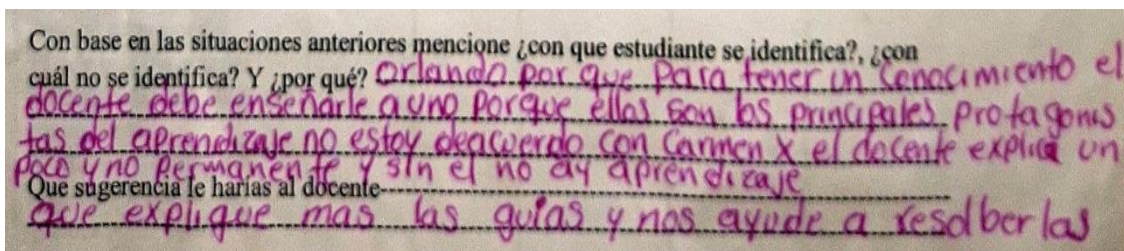 Con base en las situaciones anteriores mencione ¿con que estudiante se identifica?, ¿con
cuál no se identifica? Y ¿por qué? Orlando por que para tener un Conocimiento el
docente debe enseñarle a uno porque ellos son los principales protagonis
tas del aprendizaje no estoy deacuerdo con Carmen x el docente explica un
poco y no permanente y sin el no ay aprendizaje
Que sugerencia le harías al docente
que explique mas las guías y nos ayude a resolber las